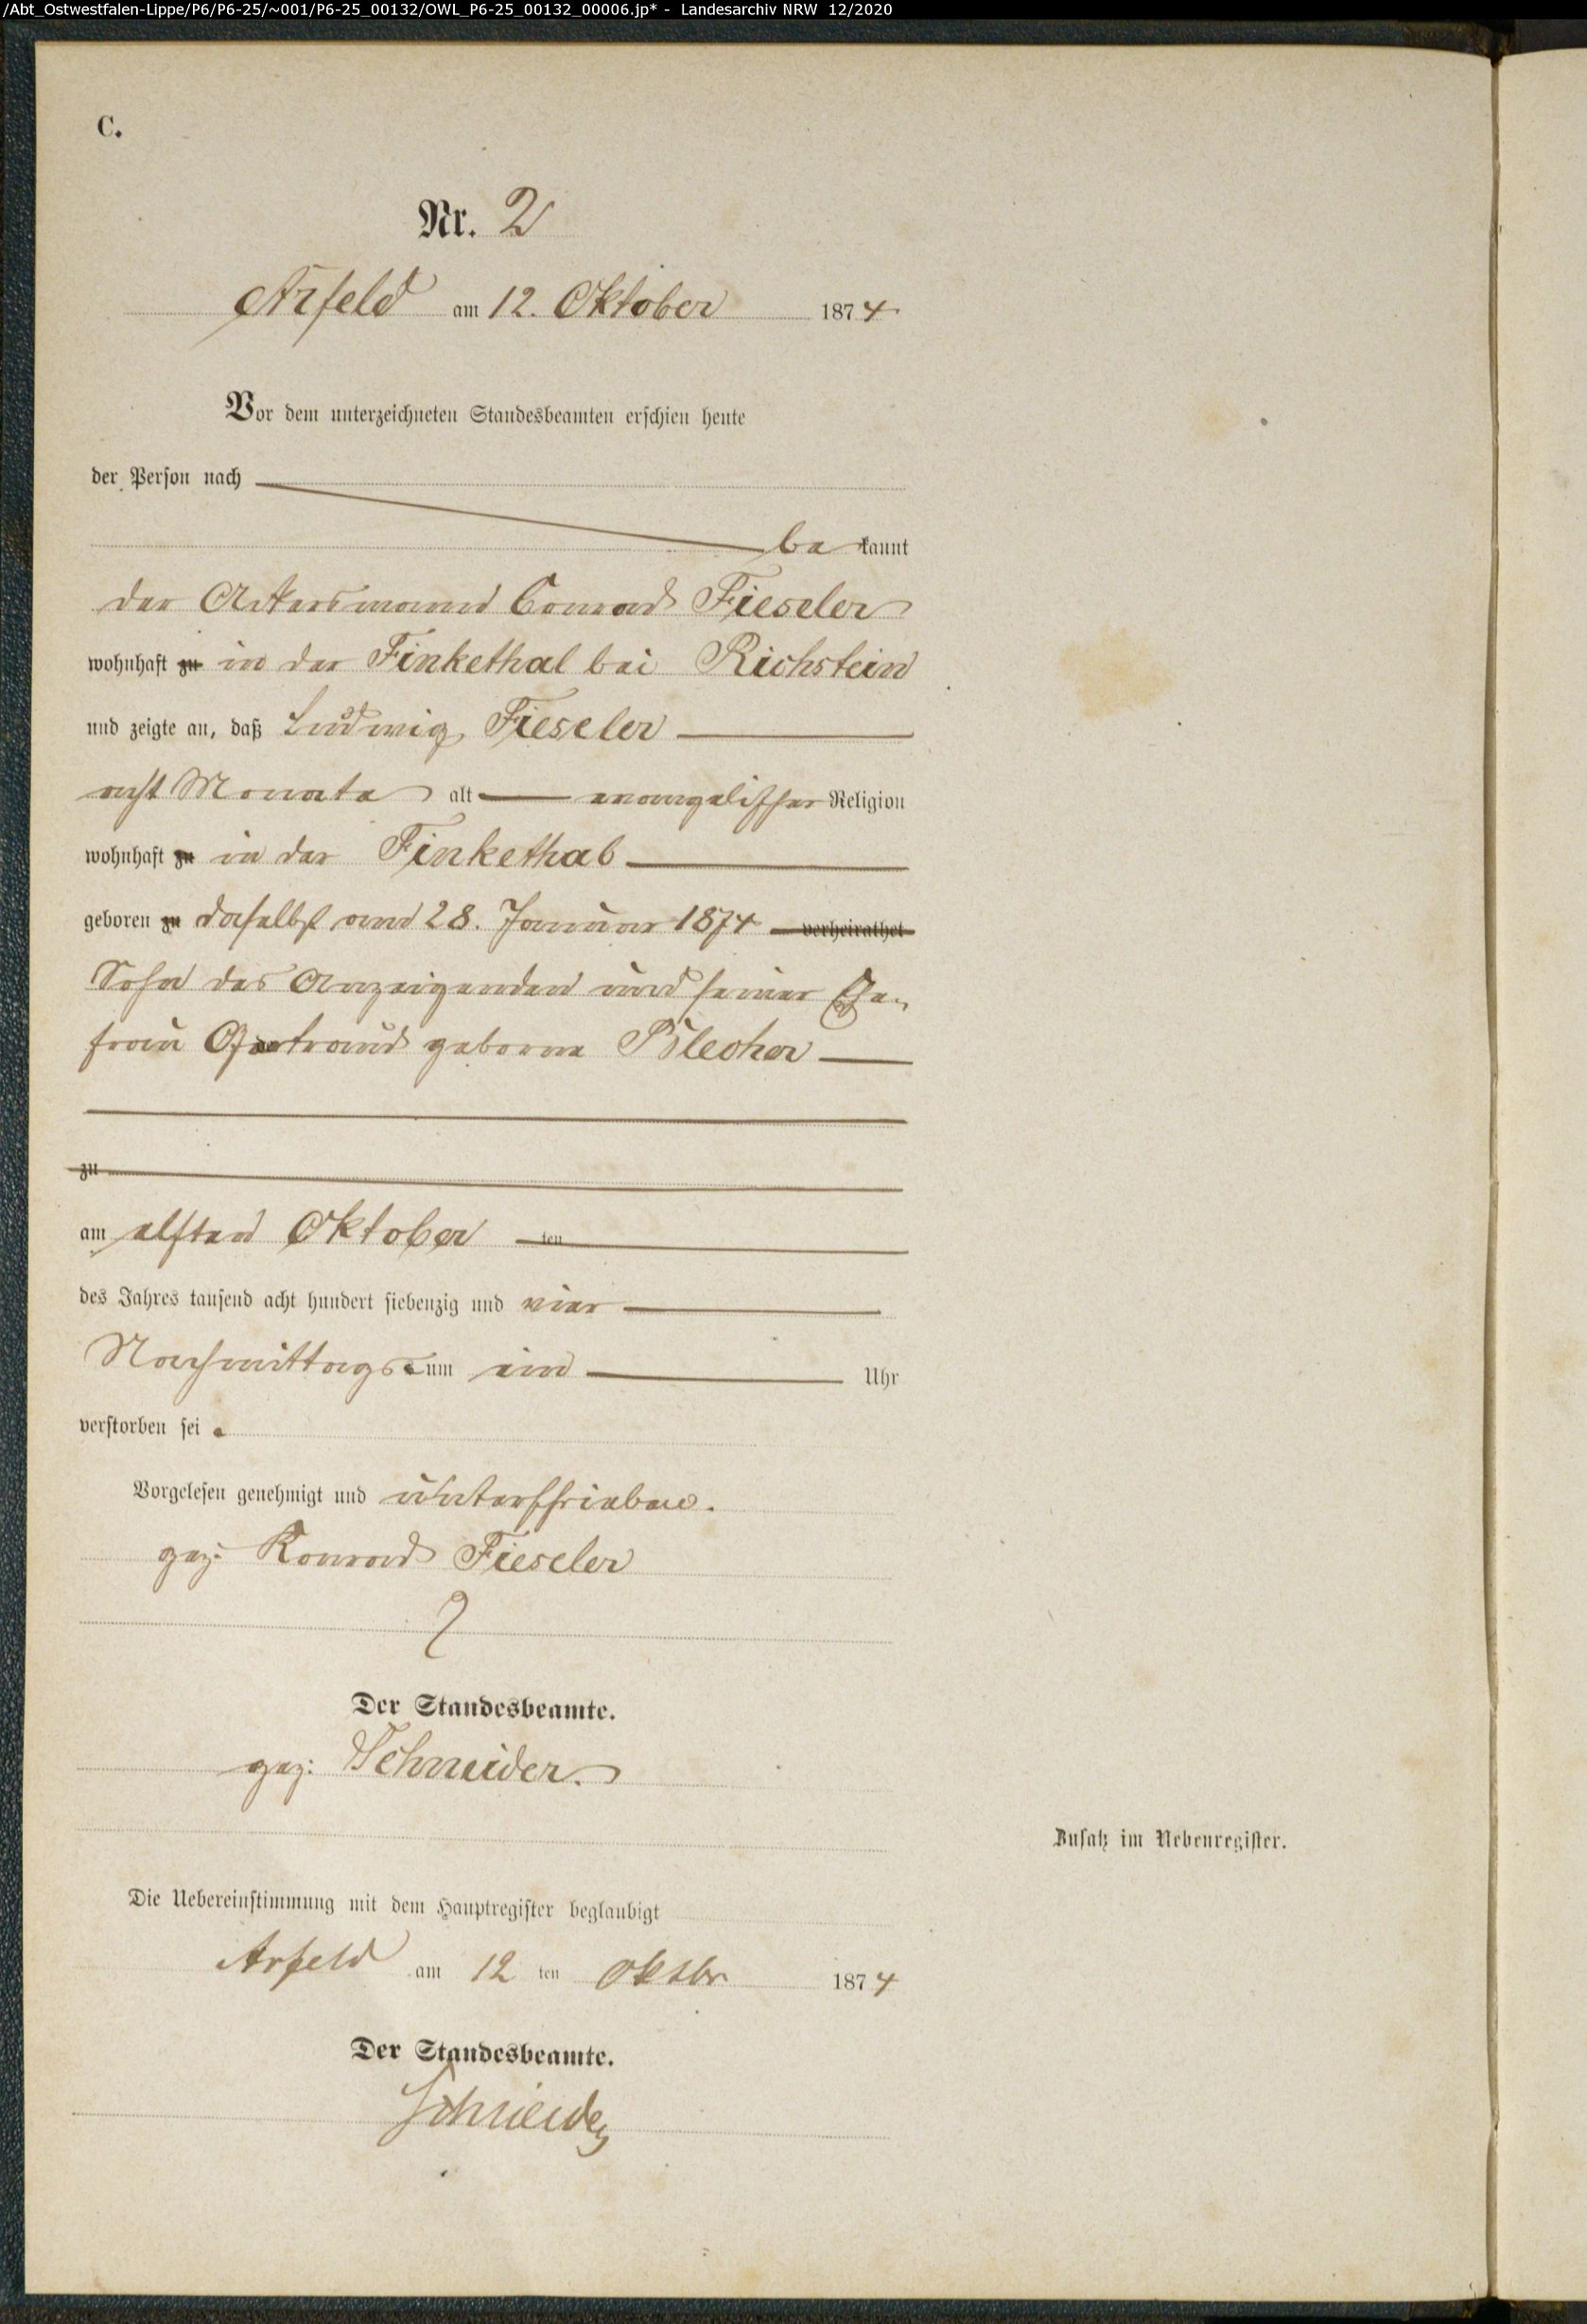 /Abt_Ostwestfalen-Lippe/P6/P6-25/~001/P6-25_00132/OWL_P6-25_00132_00006.jp* - Landesarchiv NRW 12/2020
C.
Nr. 2
Arfeld am 12. Oktober 1874
Vor dem unterzeichneten Standesbeamten erschien heute
der Person nach
be kannt
der Ackersmann Conrad Fieseler
wohnhaft zu in der Finkethal bei Richstein
und zeigte an, daß Ludwig Fieseler
acht Monate alt evangelischer Religion
wohnhaft zu in der Finkethal
geboren zu daselbst am 28. Januar 1874 verheirathet
Sohn des Anzeigenden und seiner Ehe-
frau Gertraud geborne Blecher
zu
am elften Oktober ten
des Jahres tausend acht hundert siebenzig und vier
Nachmittags um ein Uhr
verstorben sei.
Vorgelesen genehmigt und unterschrieben.
gez: Konrad Fieseler
Der Standesbeamte.
gez: Schneider.
Zusatz im Nebenregister.
Die Uebereinstimmung mit dem Hauptregister beglaubigt
Arfeld am 12 ten Oktbr. 1874
Der Standesbeamte.
Schneider